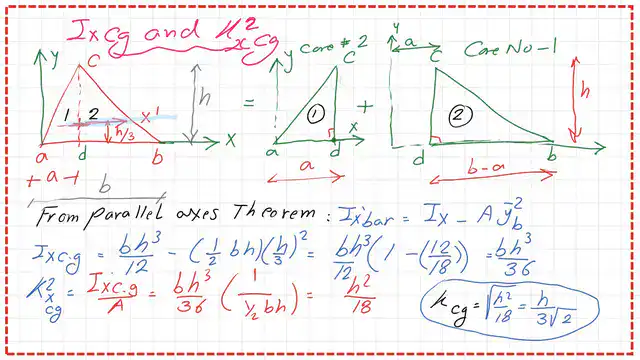 Ixcg and K²xcg
y C 1 2 x' h/3 a d b x + a + b h
=
y Case #2 C 1 a d x a
+
y a Case No-1 C 2 d b b-a h
From parallel axes Theorem : Ix bar = Ix - A ȳ²b
Ixc.g = bh³/12 - (1/2 bh)(h/3)² = bh³/12 (1 - (12/18)) = bh³/36
K²x cg = Ixc.g/A = bh³/36 (1/(1/2 bh)) = h²/18
Kcg = √(h²/18) = h/(3√2)